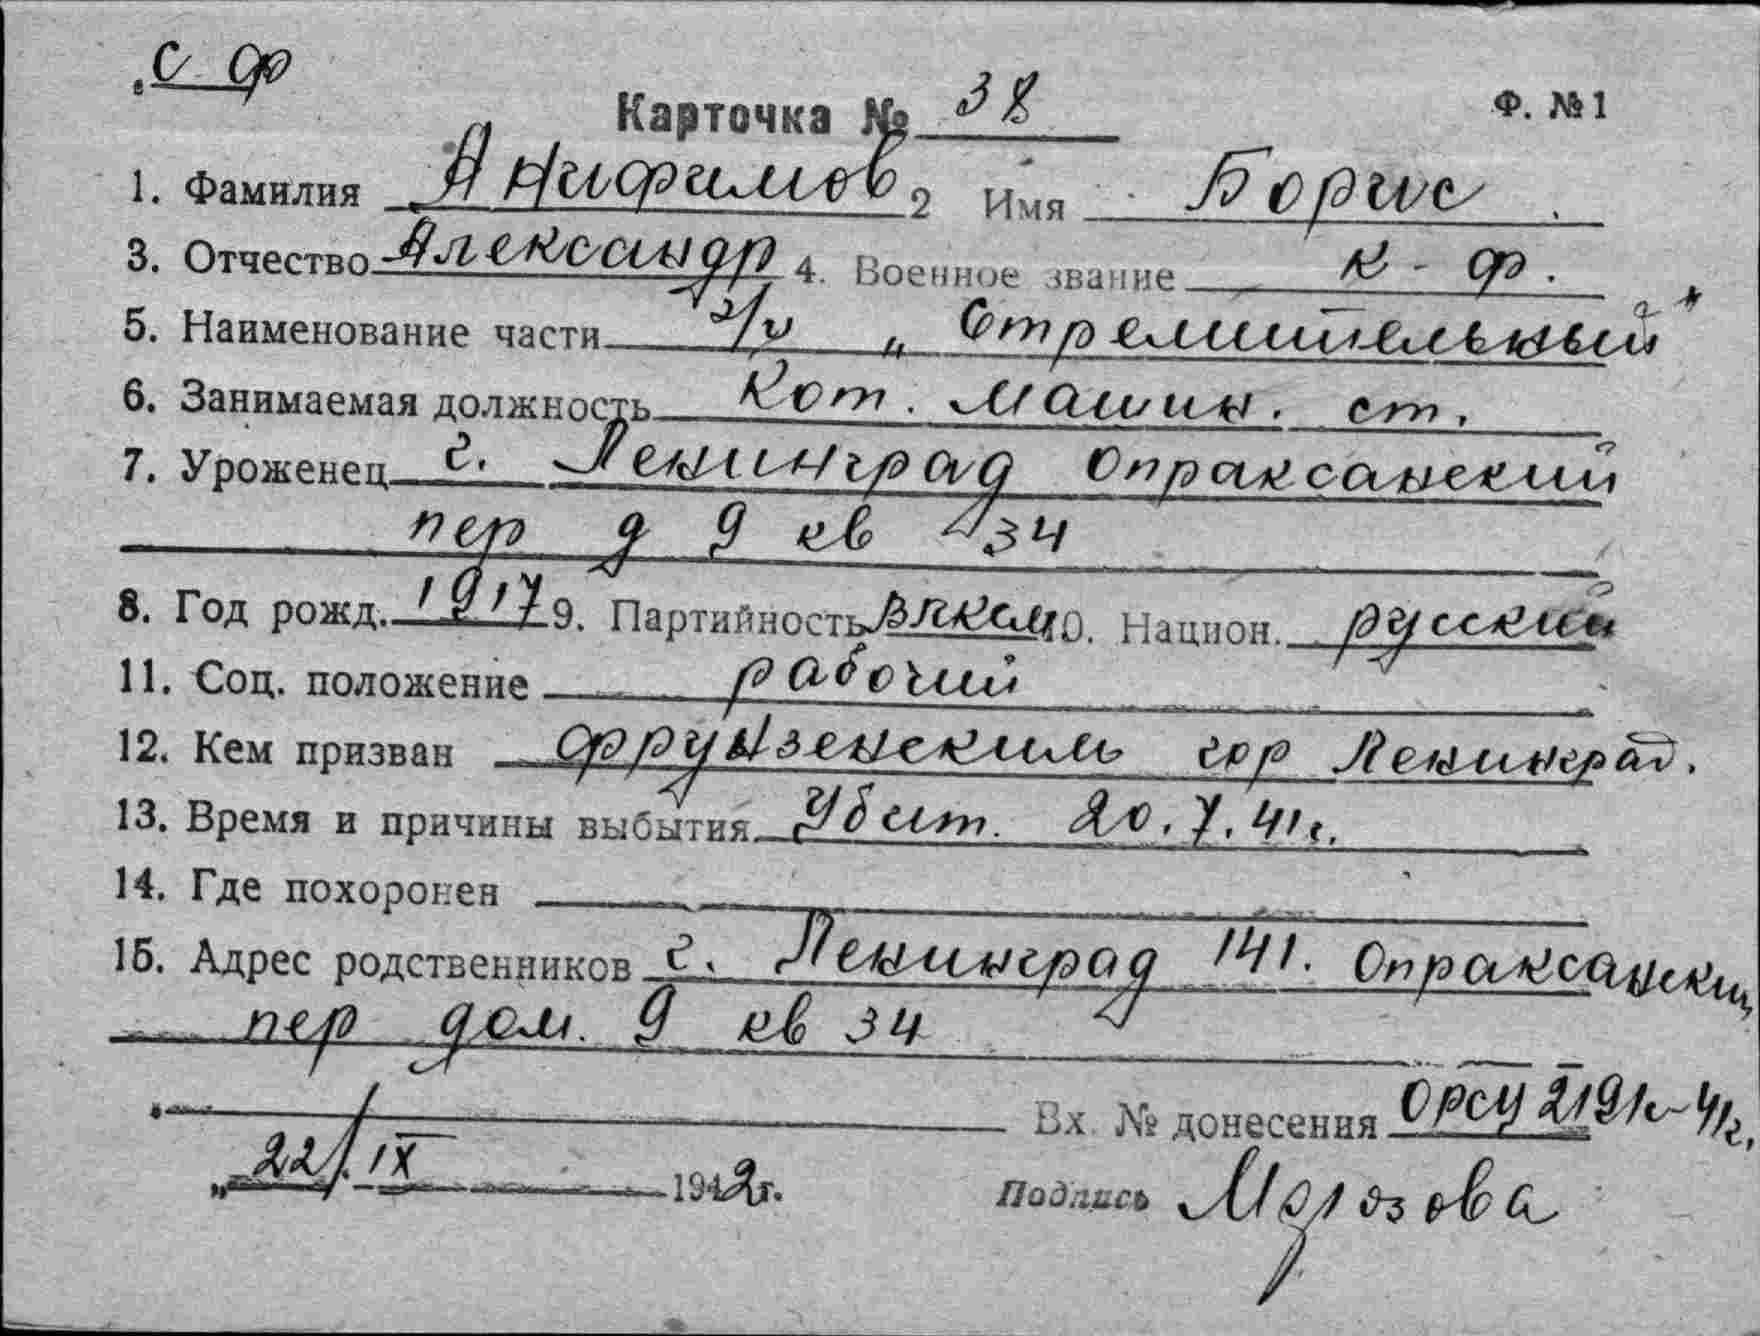 С ф
Карточка № 38 Ф. №1
1. Фамилия Анифимов 2 Имя Борис
3. Отчество Александр 4. Военное звание к-ф.
5. Наименование части "Стремительный"
6. Занимаемая должность Кот. машин. ст.
7. Уроженец г. Ленинград Опраксанский
пер д 9 кв 34
8. Год рожд. 1917 9. Партийность ВЛКСМ 10. Национ. русский
11. Соц. положение рабочий
12. Кем призван Фрунзенским гор Ленинград.
13. Время и причины выбытия Убит. 20.7.41г.
14. Где похоронен
15. Адрес родственников г. Ленинград 141. Опраксанский
пер дом. 9 кв 34
Вх. № донесения ОРСУ 2191с-41г.
"22/IX 1942г. Подпись Морозова